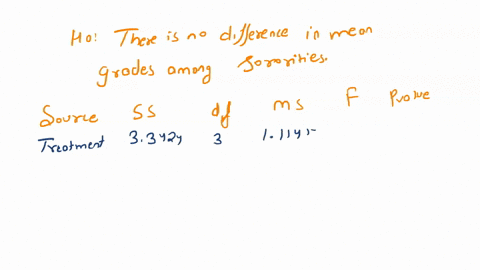 Ho: There is no difference in mean
grades among sororities.
Source SS df ms F Pvalue
Treatment 3.3424 3